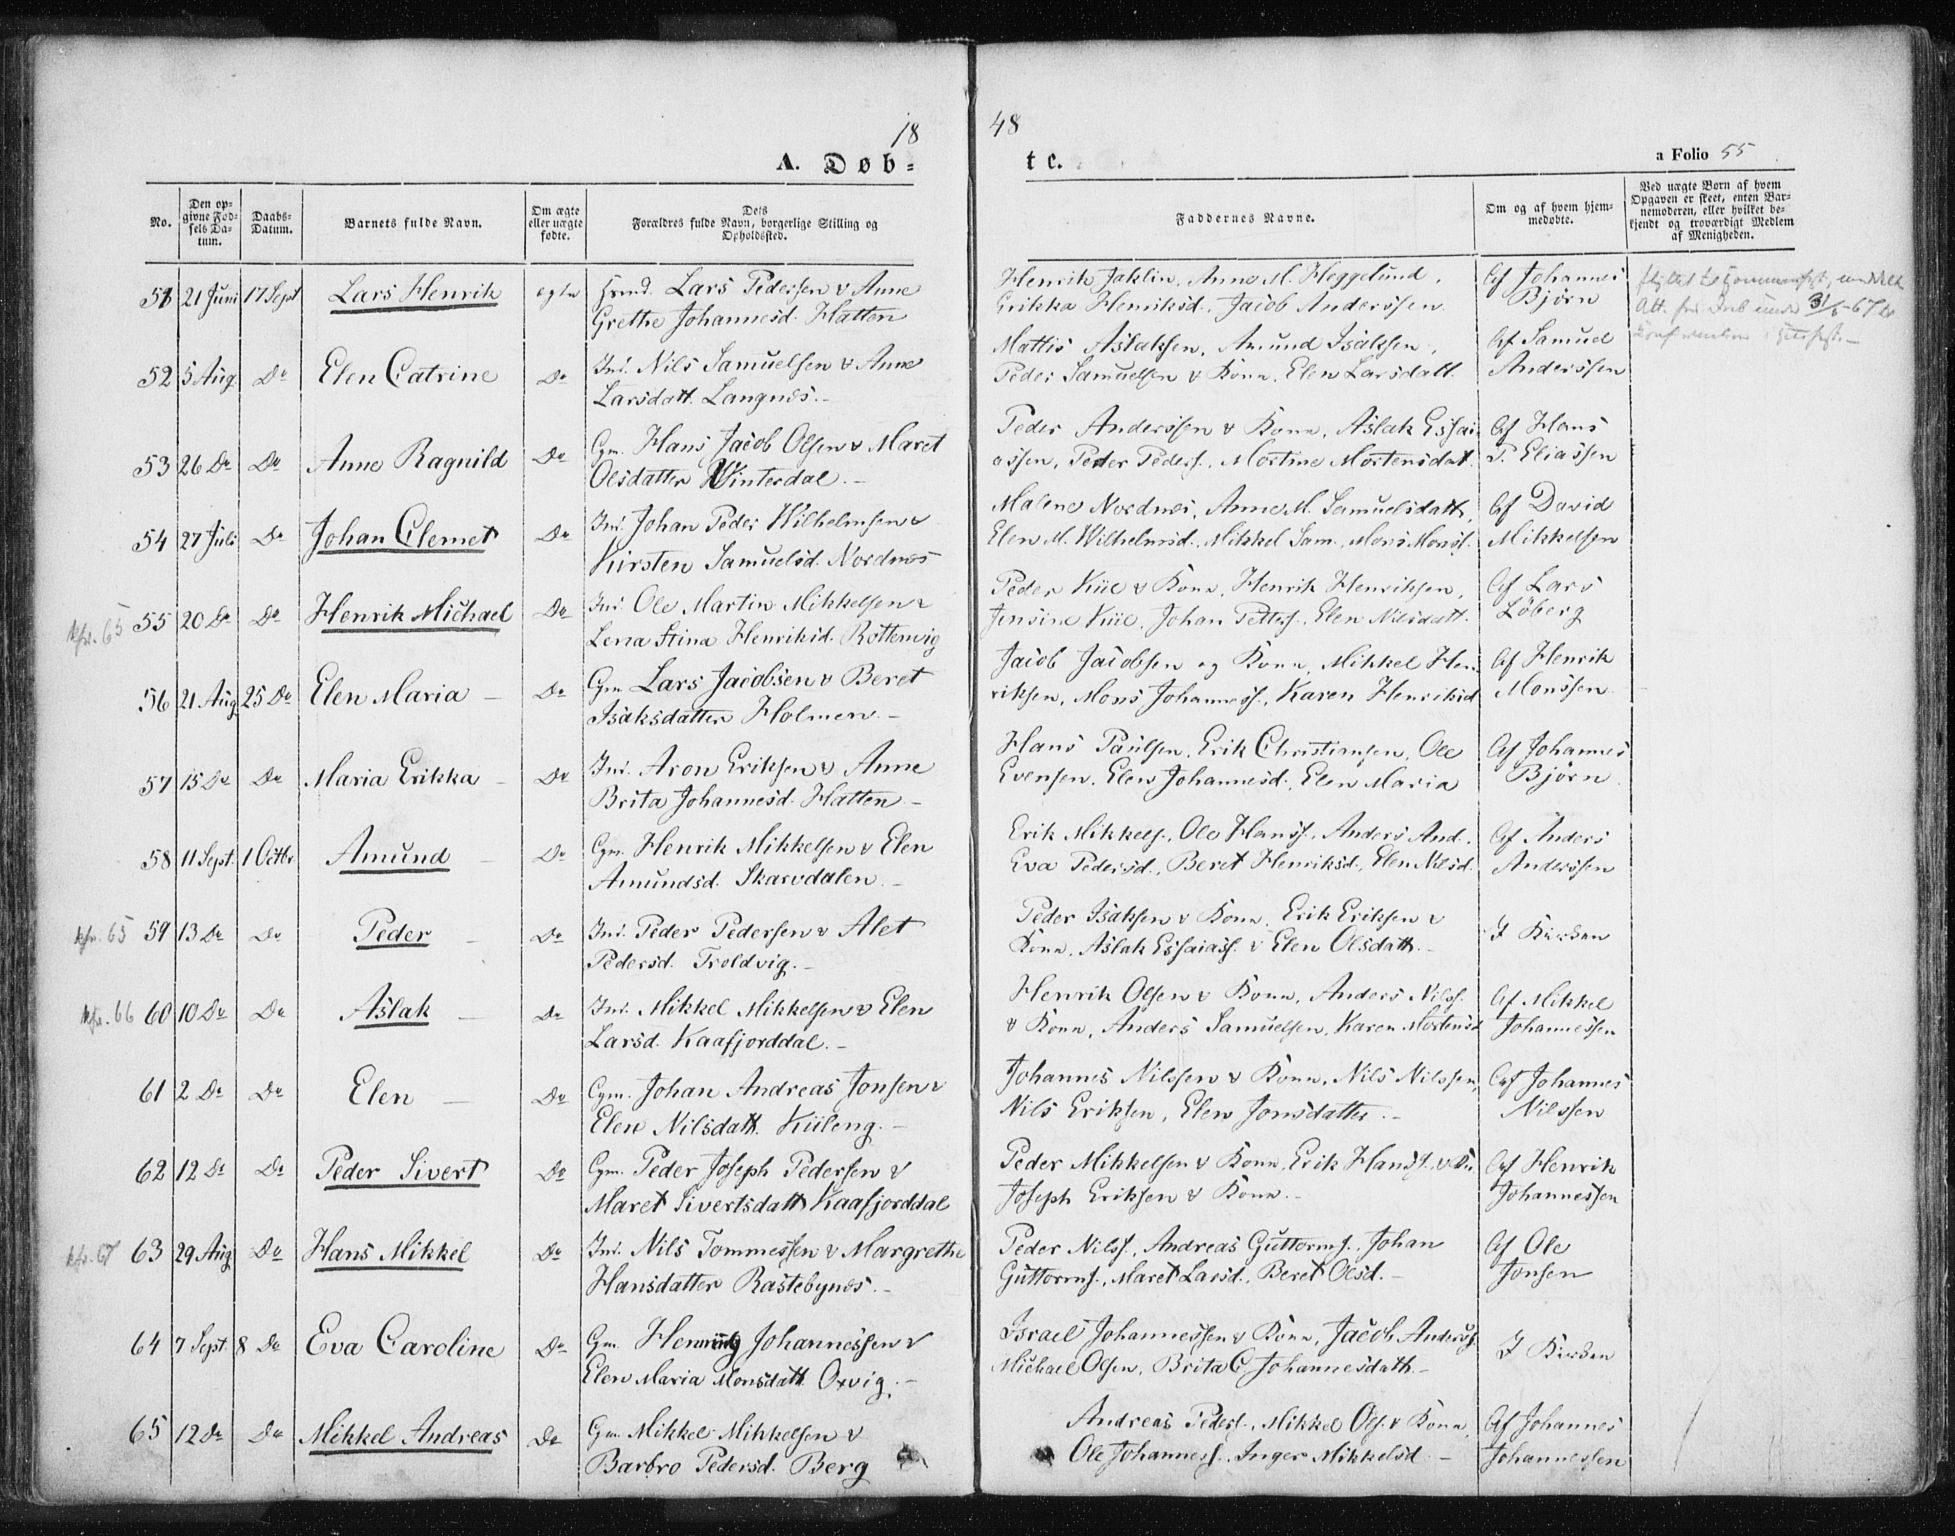 18
48
A. Døb=
te.
a Folio 55
No.
Den op-
givne Fød-
sels Da-
tum.
Daabs-
Datum.
Barnets fulde Navn.
Om ægte
eller uægte
fødte.
Dets
Forældres fulde Navn, borgerlige Stilling og
Opholdssted.
Faddernes Navne.
Om og af hvem hjem-
medøbte.
Ved uægte Børn af hvem
Opgaven er skeet, enten Bar-
nemoderen, eller hvilket be-
kjendt og troværdigt Medlem
af Menigheden.
51 21 Juni 17 Sept Lars Henrik ægte Lars Pedersen & Anne
Grethe Johannesd. Hatten
Henrik Jaklin, Anne M. Heggelund,
Erikka Henriksd., Jacob Anderssen
Af Johannes
Bjørn
52 5 Aug. Do Elen Catrine Do Ind. Nils Samuelsen & Anne
Larsdatt. Langnæs.-
Mattis Aslaksen, Amund Isaksen,
Peder Samuelsen & Kone, Elen Larsdatt.
Af Samuel
Anderssen
53 26 Do Do Anne Ragnild Do Gm. Hans Jacob Olsen & Maret
Olsdatter Winterdal.-
Peder Anderssen & Kone, Aslak Essai-
assen, Peder Peders., Mortine Mortensdat.
Af Hans
P. Eliassen
54 27 Juli Do Johan Clemet Do Ind. Johan Peder Wilhelmsen &
Kirsten Samuelsd. Nordnæs
Malene Nordnæs, Anne M. Samuelsdatt.,
Elen M. Wilhelmsd., Mikkel Sam., Mons Monss.
Af David
Mikkelsen
kfr. 65 55 20 Do Do Henrik Michael Do Ind. Ole Martin Mikkelsen &
Lena Stina Henriksd. Rottenvig
Peder Kiil & Kone, Henrik Henriksen,
Jensine Kiil, Johan Petters., Elen Nilsdatt.
Af Lars
Løberg
56 21 Aug. 25 Do Elen Maria - Do Gm Lars Jacobsen & Beret
Isaksdatter Holmen.-
Jacob Jacobsen og Kone, Mikkel Hen-
riksen, Mons Johanness., Karen Henriksd
Af Henrik
Monssen
57 15 Do Do Maria Erikka - Do Ind. Aron Eriksen & Anne
Brita Johannesd. Hatten -
Hans Paulsen, Erik Christiansen, Ole
Evensen, Elen Johannesd., Elen Maria
Af Johannes
Bjørn
58 11 Sept. 1 Octbr. Amund - Do Gm. Henrik Mikkelsen & Elen
Amundsd. Skarvdalen.-
Erik Mikkels., Ole Hanss., Anders And.,
Eva Pedersd., Beret Henriksd., Elen Nilsd.
Af Anders
Anderssen
kfr. 65 59 13 Do Do Peder - Do Ind. Peder Pedersen & Alet
Pedersd. Troldvig.-
Peder Isaksen & Kone, Erik Eriksen &
Kone, Aslak Essaiass. & Elen Olsdatt.-
I Kirken
kfr. 66 60 10 Do Do Aslak - Do Ind. Mikkel Mikkelsen & Elen
Larsd. Kaafjorddal.-
Henrik Olsen & Kone, Anders Nilss.
& Kone, Anders Samuelsen, Karen Mortensd
Af Mikkel
Johannessen
61 2 Do Do Elen - Do Gm. Johan Andreas Jonsen &
Elen Nilsdatt. Kiileng.-
Johannes Nilssen & Kone, Nils Nilssen,
Nils Eriksen, Elen Jonsdatter.-
Af Johannes
Nilssen
62 12 Do Do Peder Sivert Do Gm. Peder Joseph Pedersen &
Maret Sivertsdatt. Kaafjorddal
Peder Mikkelsen & Kone, Erik Hanss. & Ko.
Joseph Eriksen & Kone.-
Af Henrik
Johannessen
kfr. 67 63 29 Aug. Do Hans Mikkel Do Ind. Nils Tommessen & Margrethe
Hansdatter Rastebynæs.-
Peder Nilss., Andreas Guttorms., Johan
Guttorms., Maret Larsd., Beret Olsd.-
Af Ole
Jonsen
64 7 Sept. 8 Do Eva Caroline Do Gm. Henning Johannessen &
Elen Maria Monsdatt. Oxvig.-
Israel Johannessen & Kone, Jacob Anderss.
Michael Olsen, Brita C. Johannesdatt.-
I Kirken
65 12 Do Do Mikkel Andreas Do Gm. Mikkel Mikkelsen &
Barbro Pedersd. Berg
Andreas Peders., Mikkel Ols. & Kone,
Ole Johanness., Inger Mikkelsd.-
Af Johannes
Johannessen